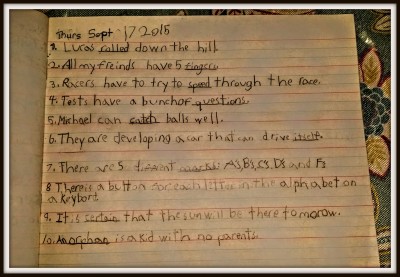 Thurs Sept 17 2015
1. Lucas rolled down the hill.
2. All my freinds have 5 fingers.
3. Racers have to try to speed through the race.
4. Tests have a bunch of questions.
5. Michael can catch balls well.
6. They are developing a car that can drive itself.
7. There are 5 A's, B's, C's, D's and F's
8 There is a button for each letter in the alphabet on
a keybort.
9. It is certain that the sun will be there tomorow.
10. An orphan is a kid with no parents.